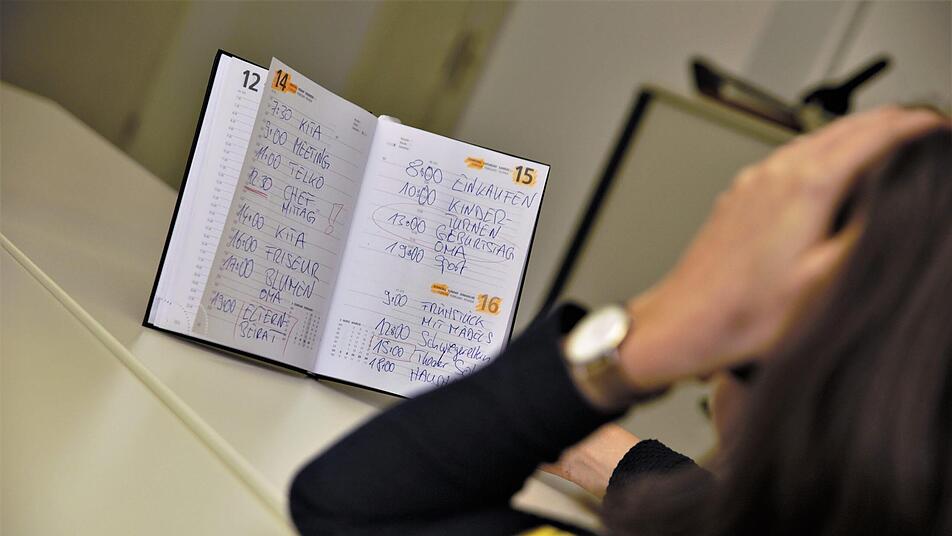 12
14
7:30 KITA
9:00 MEETING
11:00 TELKO
12:30 CHEF
MITTAG!
14:00 KITA
16:00 FRISEUR
17:00 BLUMEN
OMA
19:00 ELTERN-
BEIRAT
15
8:00 EINKAUFEN
10:00 KINDER-
TURNEN
13:00 GEBURTSTAG
OMA
19:00 Sport
16
9:00 FRÜHSTÜCK
MIT MÄDELS
12:00 Schwiegereltern
15:00 Theater
18:00